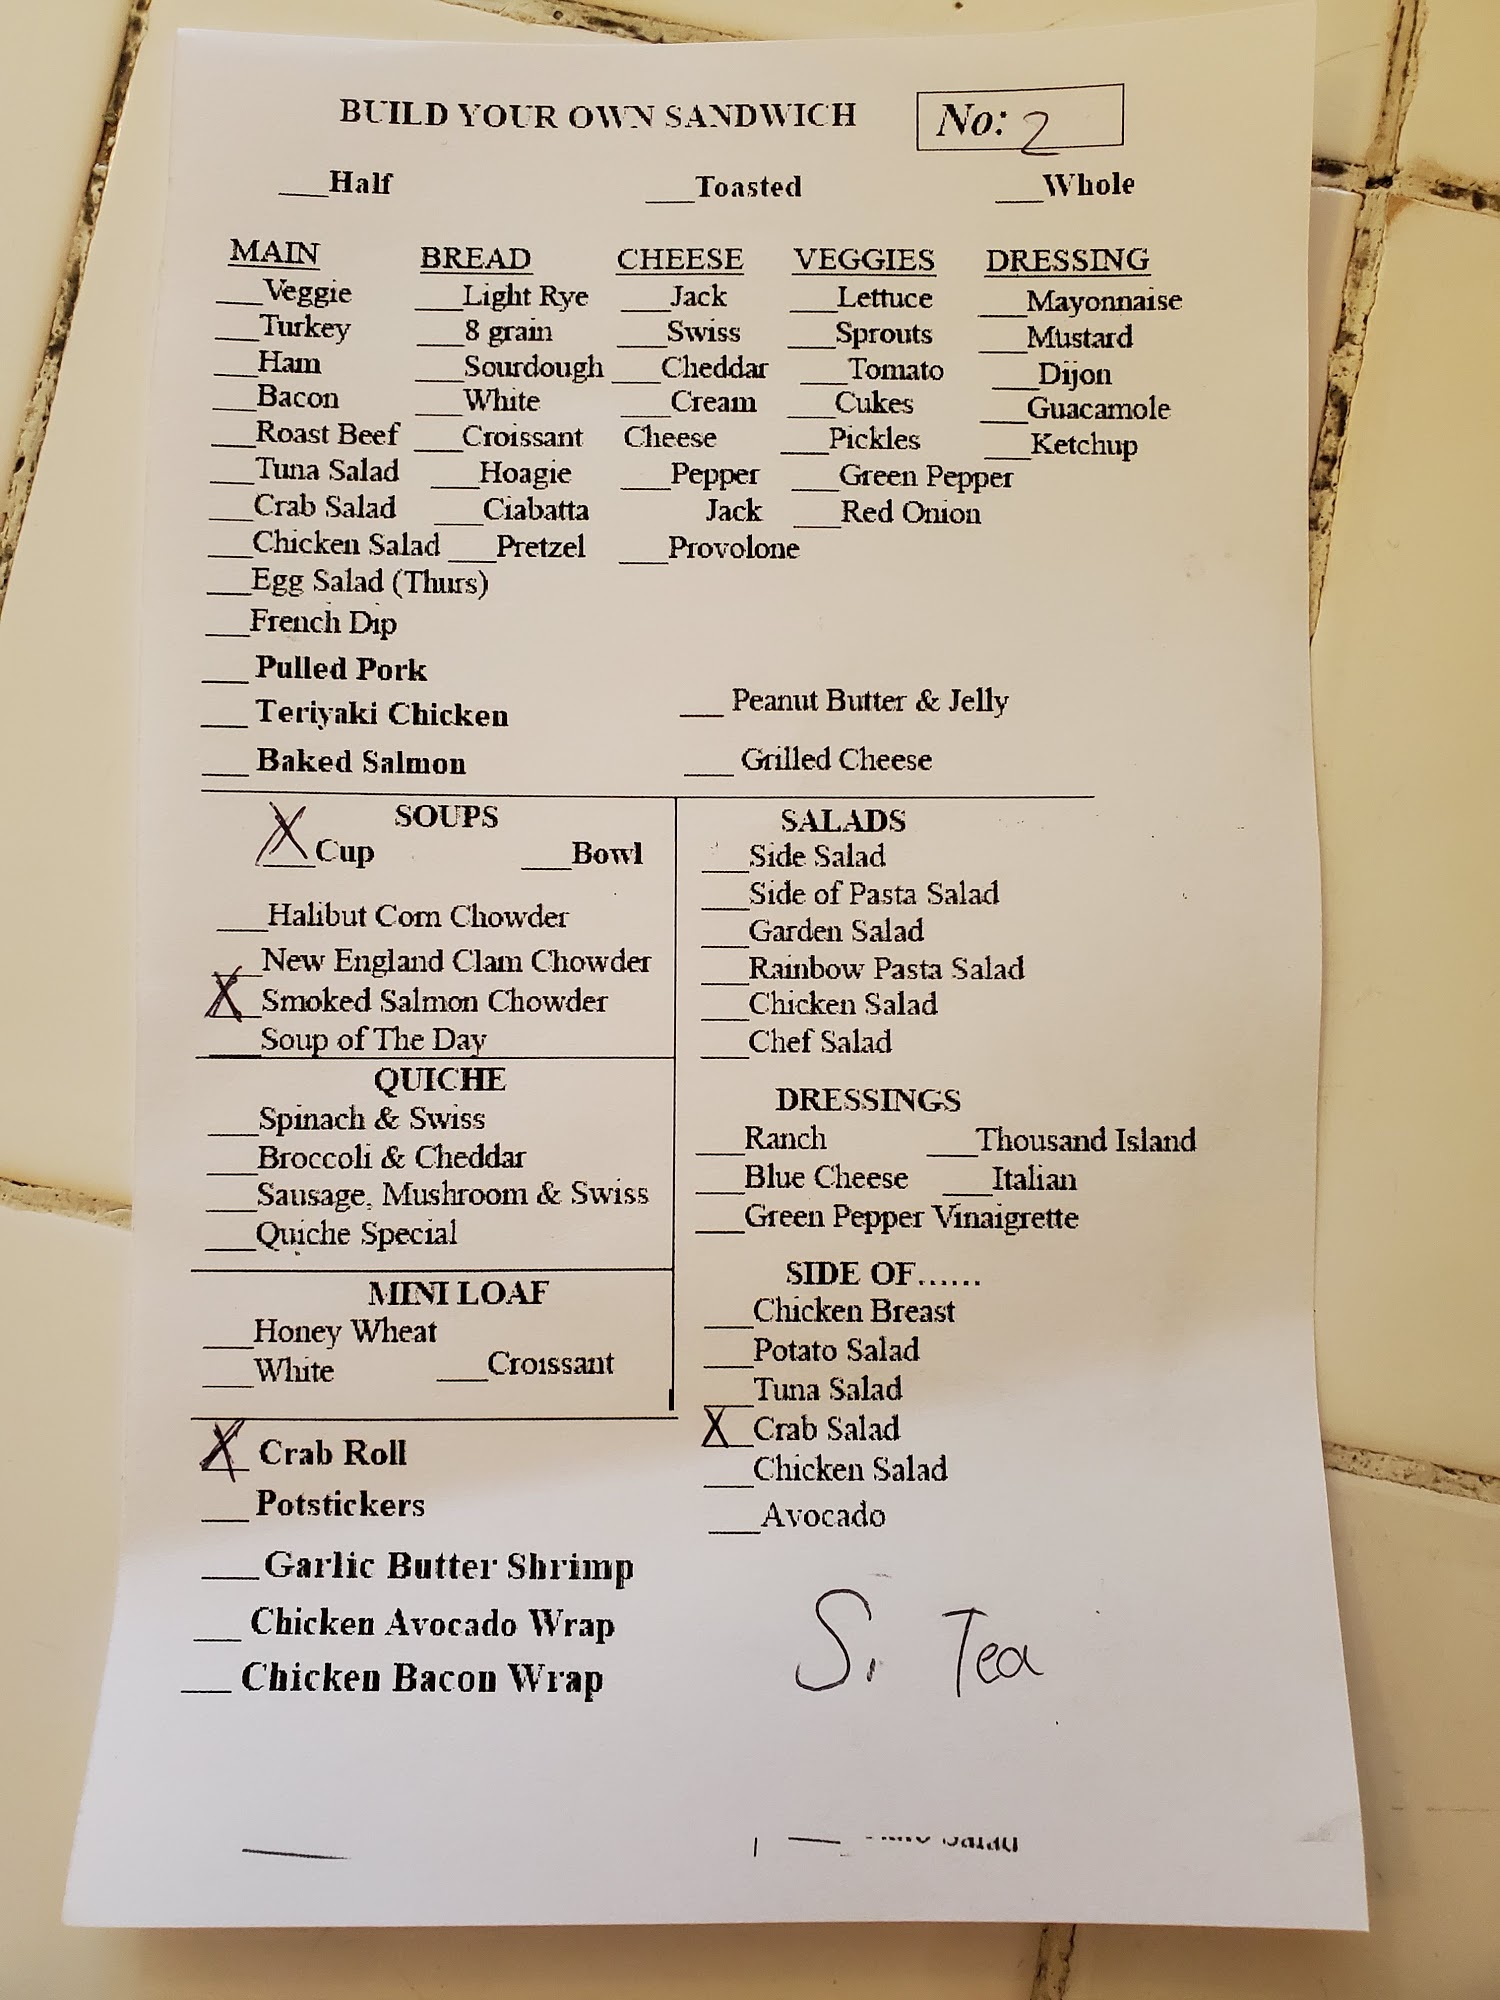 BUILD YOUR OWN SANDWICH No: 2
___Half ___Toasted ___Whole
MAIN BREAD CHEESE VEGGIES DRESSING
___Veggie ___Light Rye ___Jack ___Lettuce ___Mayonnaise
___Turkey ___8 grain ___Swiss ___Sprouts ___Mustard
___Ham ___Sourdough ___Cheddar ___Tomato ___Dijon
___Bacon ___White ___Cream ___Cukes ___Guacamole
___Roast Beef ___Croissant Cheese ___Pickles ___Ketchup
___Tuna Salad ___Hoagie ___Pepper ___Green Pepper
___Crab Salad ___Ciabatta Jack ___Red Onion
___Chicken Salad ___Pretzel ___Provolone
___Egg Salad (Thurs)
___French Dip
___ Pulled Pork
___ Peanut Butter & Jelly
___ Teriyaki Chicken
___ Baked Salmon ___ Grilled Cheese
SOUPS
X Cup ___Bowl
___Halibut Corn Chowder
___New England Clam Chowder
X Smoked Salmon Chowder
___Soup of The Day
QUICHE
___Spinach & Swiss
___Broccoli & Cheddar
___Sausage, Mushroom & Swiss
___Quiche Special
MINI LOAF
___Honey Wheat
___White ___Croissant
X Crab Roll
___ Potstickers
___ Garlic Butter Shrimp
___ Chicken Avocado Wrap
___ Chicken Bacon Wrap
SALADS
___Side Salad
___Side of Pasta Salad
___Garden Salad
___Rainbow Pasta Salad
___Chicken Salad
___Chef Salad
DRESSINGS
___Ranch ___Thousand Island
___Blue Cheese ___Italian
___Green Pepper Vinaigrette
SIDE OF......
___Chicken Breast
___Potato Salad
___Tuna Salad
X Crab Salad
___Chicken Salad
___Avocado
S. Tea